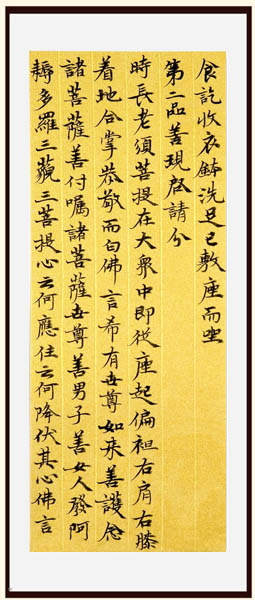 食訖收衣鉢洗足已敷座而坐
第二品善現啓請分
時長老須菩提在大眾中即從座起偏袒右肩右膝
着地合掌恭敬而白佛言希有世尊如来善護念
諸菩薩善付囑諸菩薩世尊善男子善女人發阿
耨多羅三藐三菩提心云何應住云何降伏其心佛言